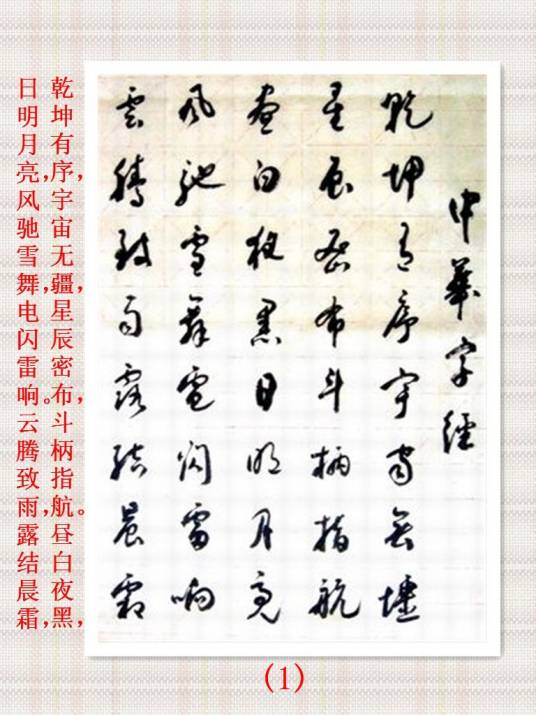 中華字經
乾坤有序宇宙無疆
星辰密布斗柄指航
晝白夜黑日明月亮
風馳雪舞電閃雷响
雲騰致雨露結晨霜
乾坤有序，宇宙无疆，星辰密布，斗柄指航。昼白夜黑，
日明月亮，风驰雪舞，电闪雷响。云腾致雨，露结晨霜，
(1)